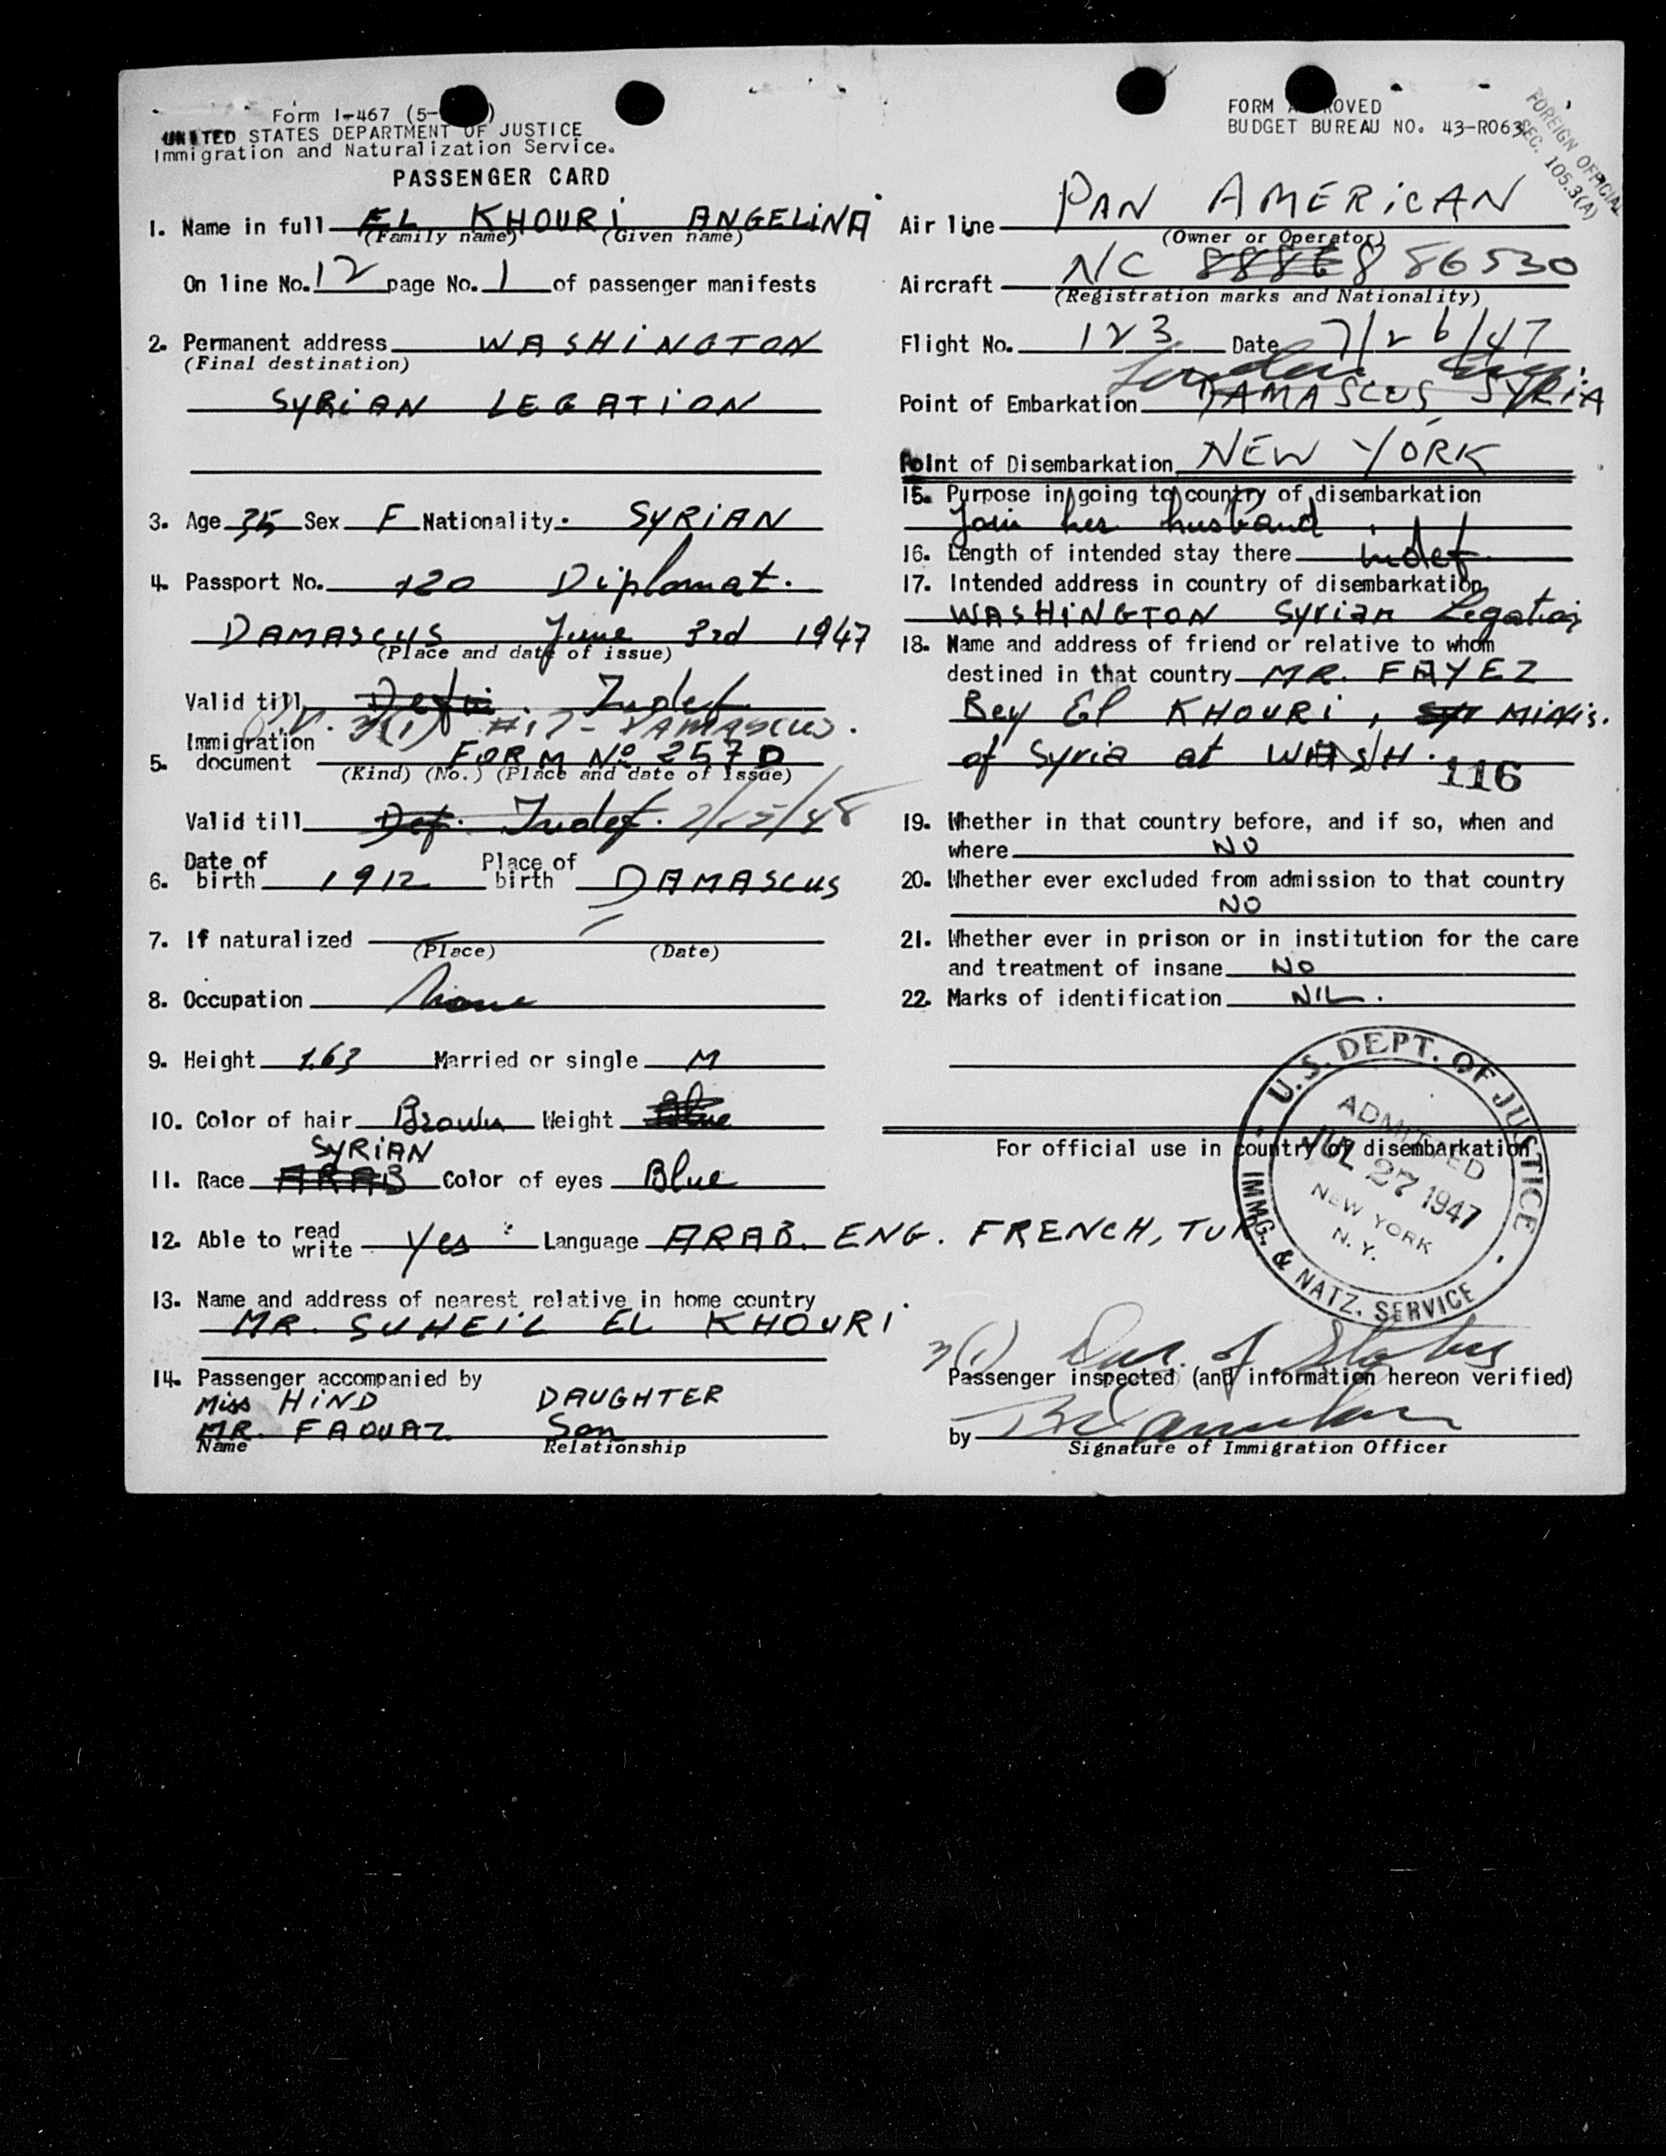 Form I-467 (5-
UNITED STATES DEPARTMENT OF JUSTICE
Immigration and Naturalization Service.
PASSENGER CARD
1. Name in full EL KHOURI ANGELINA
(Family name) (Given name)
On line No. 12 page No. 1 of passenger manifests
2. Permanent address WASHINGTON
(Final destination)
SYRIAN LEGATION
3. Age 35 Sex F Nationality. SYRIAN
4. Passport No. 120 Diplomat.
DAMASCUS June 3rd 1947
(Place and date of issue)
Valid till Indef
V. 3(1) #17 - DAMASCUS.
5. Immigration document FORM No 257D
(Kind) (No.) (Place and date of Issue)
Valid till Def. Indef.
6. Date of birth 1912 Place of birth DAMASCUS
7. If naturalized
(Place) (Date)
8. Occupation None
9. Height 1.63 Married or single M
10. Color of hair Brown Weight Blue
SYRIAN
11. Race ARAB Color of eyes Blue
12. Able to read write Yes Language ARAB. ENG. FRENCH, TUR
13. Name and address of nearest relative in home country
MR. SUHEIL EL KHOURI
14. Passenger accompanied by
Miss HIND DAUGHTER
MR. FAOUAZ Son
Name Relationship
FORM APPROVED
BUDGET BUREAU NO. 43-R063
FOREIGN OFFICIAL
SEC. 105.3(A)
Air line PAN AMERICAN
(Owner or Operator)
Aircraft NC 86530
(Registration marks and Nationality)
Flight No. 123 Date 7/26/47
London Eng.
Point of Embarkation DAMASCUS, SYRIA
Point of Disembarkation NEW YORK
15. Purpose in going to country of disembarkation
Join her husband
16. Length of intended stay there indef
17. Intended address in country of disembarkation
WASHINGTON Syrian Legation
18. Name and address of friend or relative to whom
destined in that country MR. FAYEZ
Bey El KHOURI, Syr Minis.
of Syria at WASH.
116
19. Whether in that country before, and if so, when and
where NO
20. Whether ever excluded from admission to that country
NO
21. Whether ever in prison or in institution for the care
and treatment of insane NO
22. Marks of identification NIL.
For official use in country of disembarkation
U.S. DEPT. OF JUSTICE
IMMG. & NATZ. SERVICE
ADMITTED
JUL 27 1947
NEW YORK
N.Y.
3(1) Dur. of Status
Passenger inspected (and information hereon verified)
by
Signature of Immigration Officer